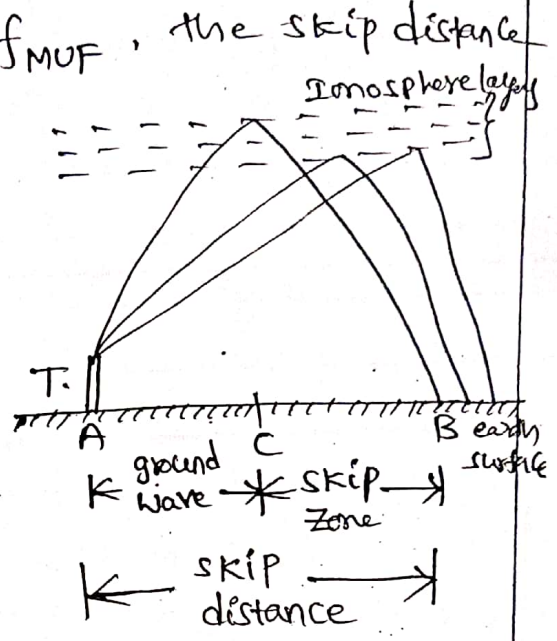 fMUF, the skip distance
Ionosphere layers
T.
A
C
B earth
surface
ground
wave
skip
zone
skip
distance